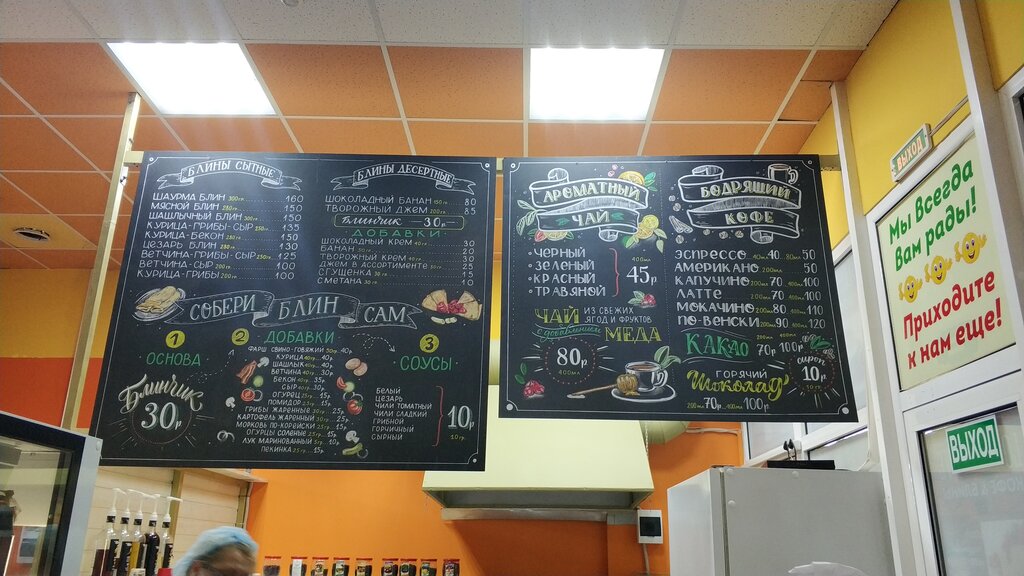 БЛИНЫ СЫТНЫЕ
ШАУРМА БЛИН 300гр. 160
МЯСНОЙ БЛИН 150
ШАШЛЫЧНЫЙ БЛИН 300гр. 150
КУРИЦА-ГРИБЫ-СЫР 135
КУРИЦА-БЕКОН 150
ЦЕЗАРЬ БЛИН 130
ВЕТЧИНА-ГРИБЫ-СЫР 125
ВЕТЧИНА-СЫР 200гр 100
КУРИЦА-ГРИБЫ 200гр. 100
БЛИНЫ ДЕСЕРТНЫЕ
ШОКОЛАДНЫЙ БАНАН 80
ТВОРОЖНЫЙ ДЖЕМ 85
БЛИНЧИК 30р.
ДОБАВКИ:
ШОКОЛАДНЫЙ КРЕМ 40гр 30
БАНАН 20
ТВОРОЖНЫЙ КРЕМ 30
ДЖЕМ В АССОРТИМЕНТЕ 25
СГУЩЕНКА 15
СМЕТАНА 10
СОБЕРИ БЛИН САМ
1 ОСНОВА
БЛИНЧИК 30р
2 ДОБАВКИ
ФАРШ СВИНО-ГОВЯЖИЙ 50гр. 40р
КУРИЦА 40р.
ШАШЛЫК 40р
ВЕТЧИНА 30р.
БЕКОН 35р
СЫР 30р.
ОГУРЕЦ 15р.
ПОМИДОР
ГРИБЫ ЖАРЕННЫЕ 25р.
КАРТОФЕЛЬ ЖАРЕННЫЙ
МОРКОВЬ ПО-КОРЕЙСКИ 15р.
ОГУРЦЫ СОЛЕНЫЕ 15р.
ЛУК МАРИНОВАННЫЙ 10р.
ПЕКИНКА 25гр. 15р.
3 СОУСЫ
БЕЛЫЙ
ЦЕЗАРЬ
ЧИЛИ ТОМАТНЫЙ
ЧИЛИ СЛАДКИЙ
ГРИБНОЙ
ГОРЧИЧНЫЙ
СЫРНЫЙ
10р
10гр.
АРОМАТНЫЙ ЧАЙ
• ЧЕРНЫЙ
• ЗЕЛЕНЫЙ
• КРАСНЫЙ
• ТРАВЯНОЙ
400мл
45р
ЧАЙ ИЗ СВЕЖИХ ЯГОД И ФРУКТОВ
с добавлением МЕДА
80р
400мл
БОДРЯЩИЙ КОФЕ
ЭСПРЕССО 40мл 40 80мл 50
АМЕРИКАНО 200мл 50
КАПУЧИНО 200мл 70 400мл 100
ЛАТТЕ 200мл 70 400мл 100
МОКАЧИНО 200мл 80 400мл 110
ПО-ВЕНСКИ 200мл 90 400мл 120
КАКАО 200мл 70р 400мл 100р
ГОРЯЧИЙ ШОКОЛАД
200мл 70р 400мл 100р
сироп 10р
ВЫХОД
Мы Всегда
Вам рады!
Приходите
к нам еще!
ВЫХОД